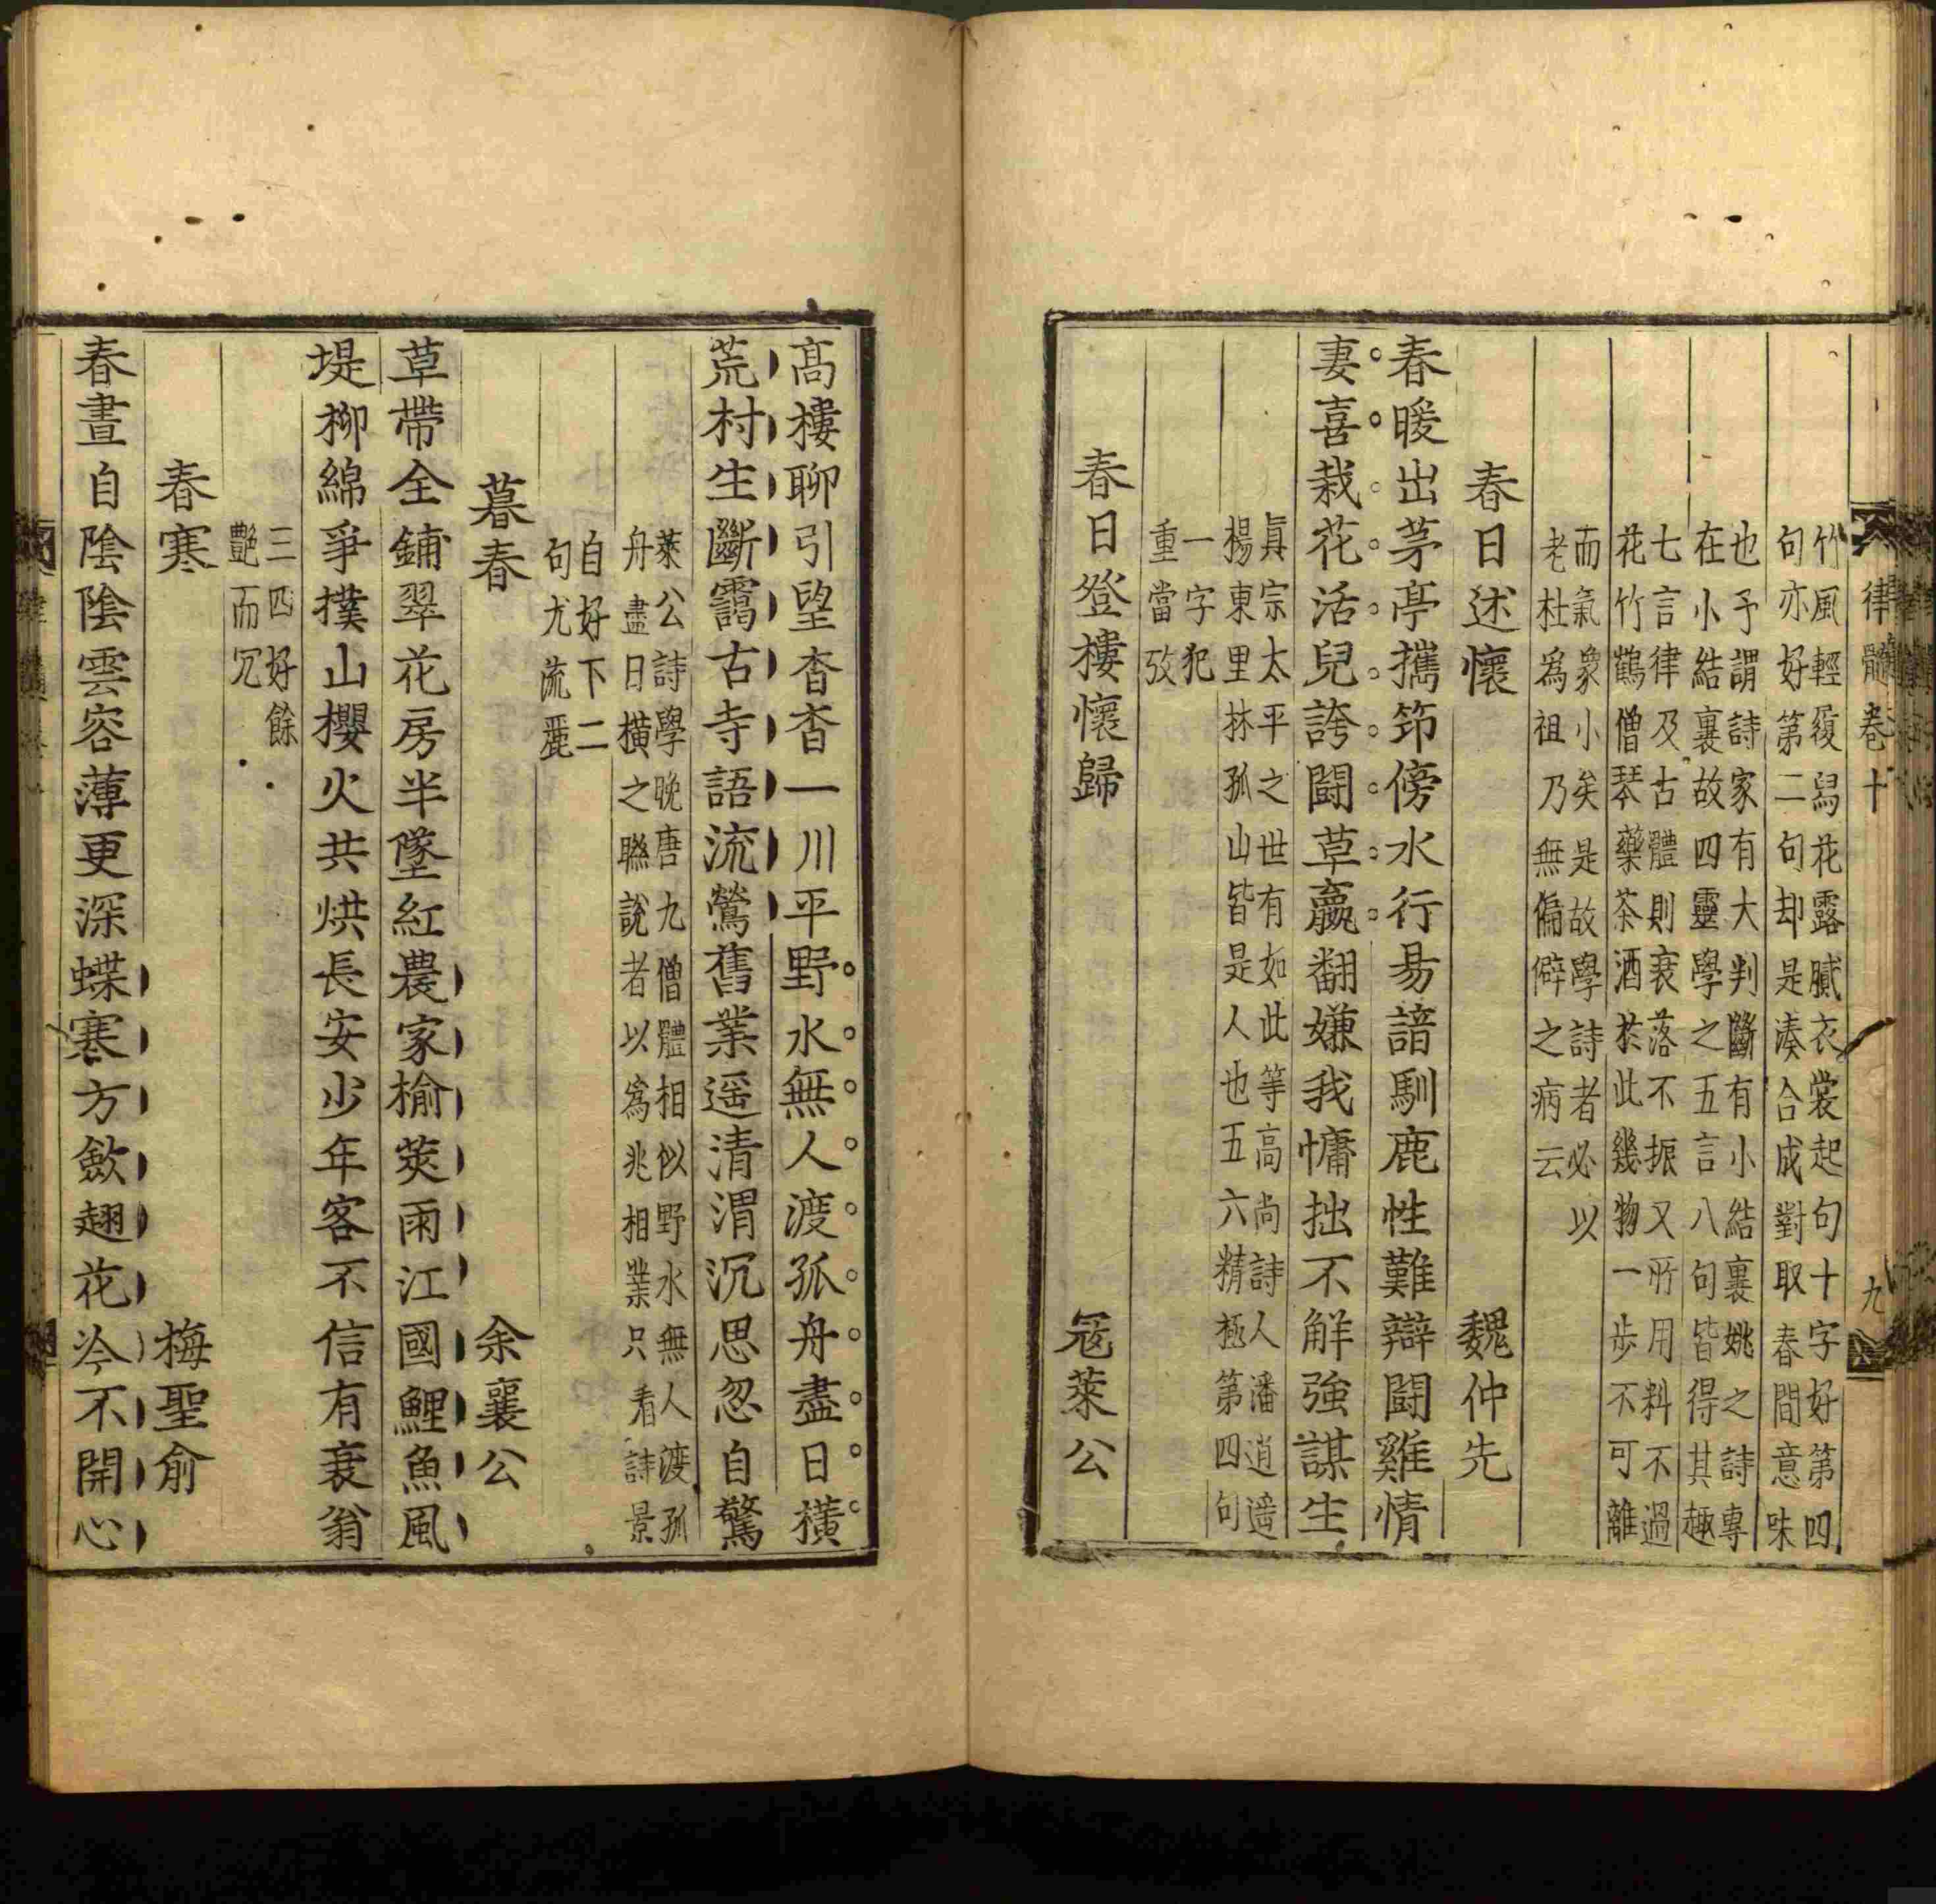 律髓卷十
九
竹風輕履舄花露膩衣裳起句十字好第四
句亦好第二句却是湊合成對取春間意味
也予謂詩家有大判斷有小結裹姚之詩專
在小結裹故四靈學之五言八句皆得其趣
七言律及古體則衰落不振又所用料不過
花竹鶴僧琴藥茶酒於此幾物一步不可離
而氣象小矣是故學詩者必以
老杜爲祖乃無偏僻之病云
春日述懷 魏仲先
春暖出茅亭攜筇傍水行昜諳馴鹿性難辯鬪雞情
妻喜栽花活兒誇鬪草贏翻嫌我慵拙不解強謀生
眞宗太平之世有如此等高尚詩人潘逍遥
楊東里林孤山皆是人也五六精極第四句
一字犯
重當攷
春日登樓懷歸 冦萊公
髙樓聊引望杳杳一川平野水無人渡孤舟盡日橫
荒村生斷靄古寺語流鶯舊業遥清渭沉思忽自驚
萊公詩學晚唐九僧體相似野水無人渡孤
舟盡日橫之聯說者以爲兆相業只看詩景
自好下二
句尤流麗
暮春 余襄公
草帶全鋪翠花房半墜紅農家榆莢雨江國鯉魚風
堤柳綿爭撲山櫻火共烘長安少年客不信有衰翁
三四好餘
艷而冗
春寒 梅聖俞
春晝自隂隂雲容薄更深蝶寒方斂翅花冷不開心